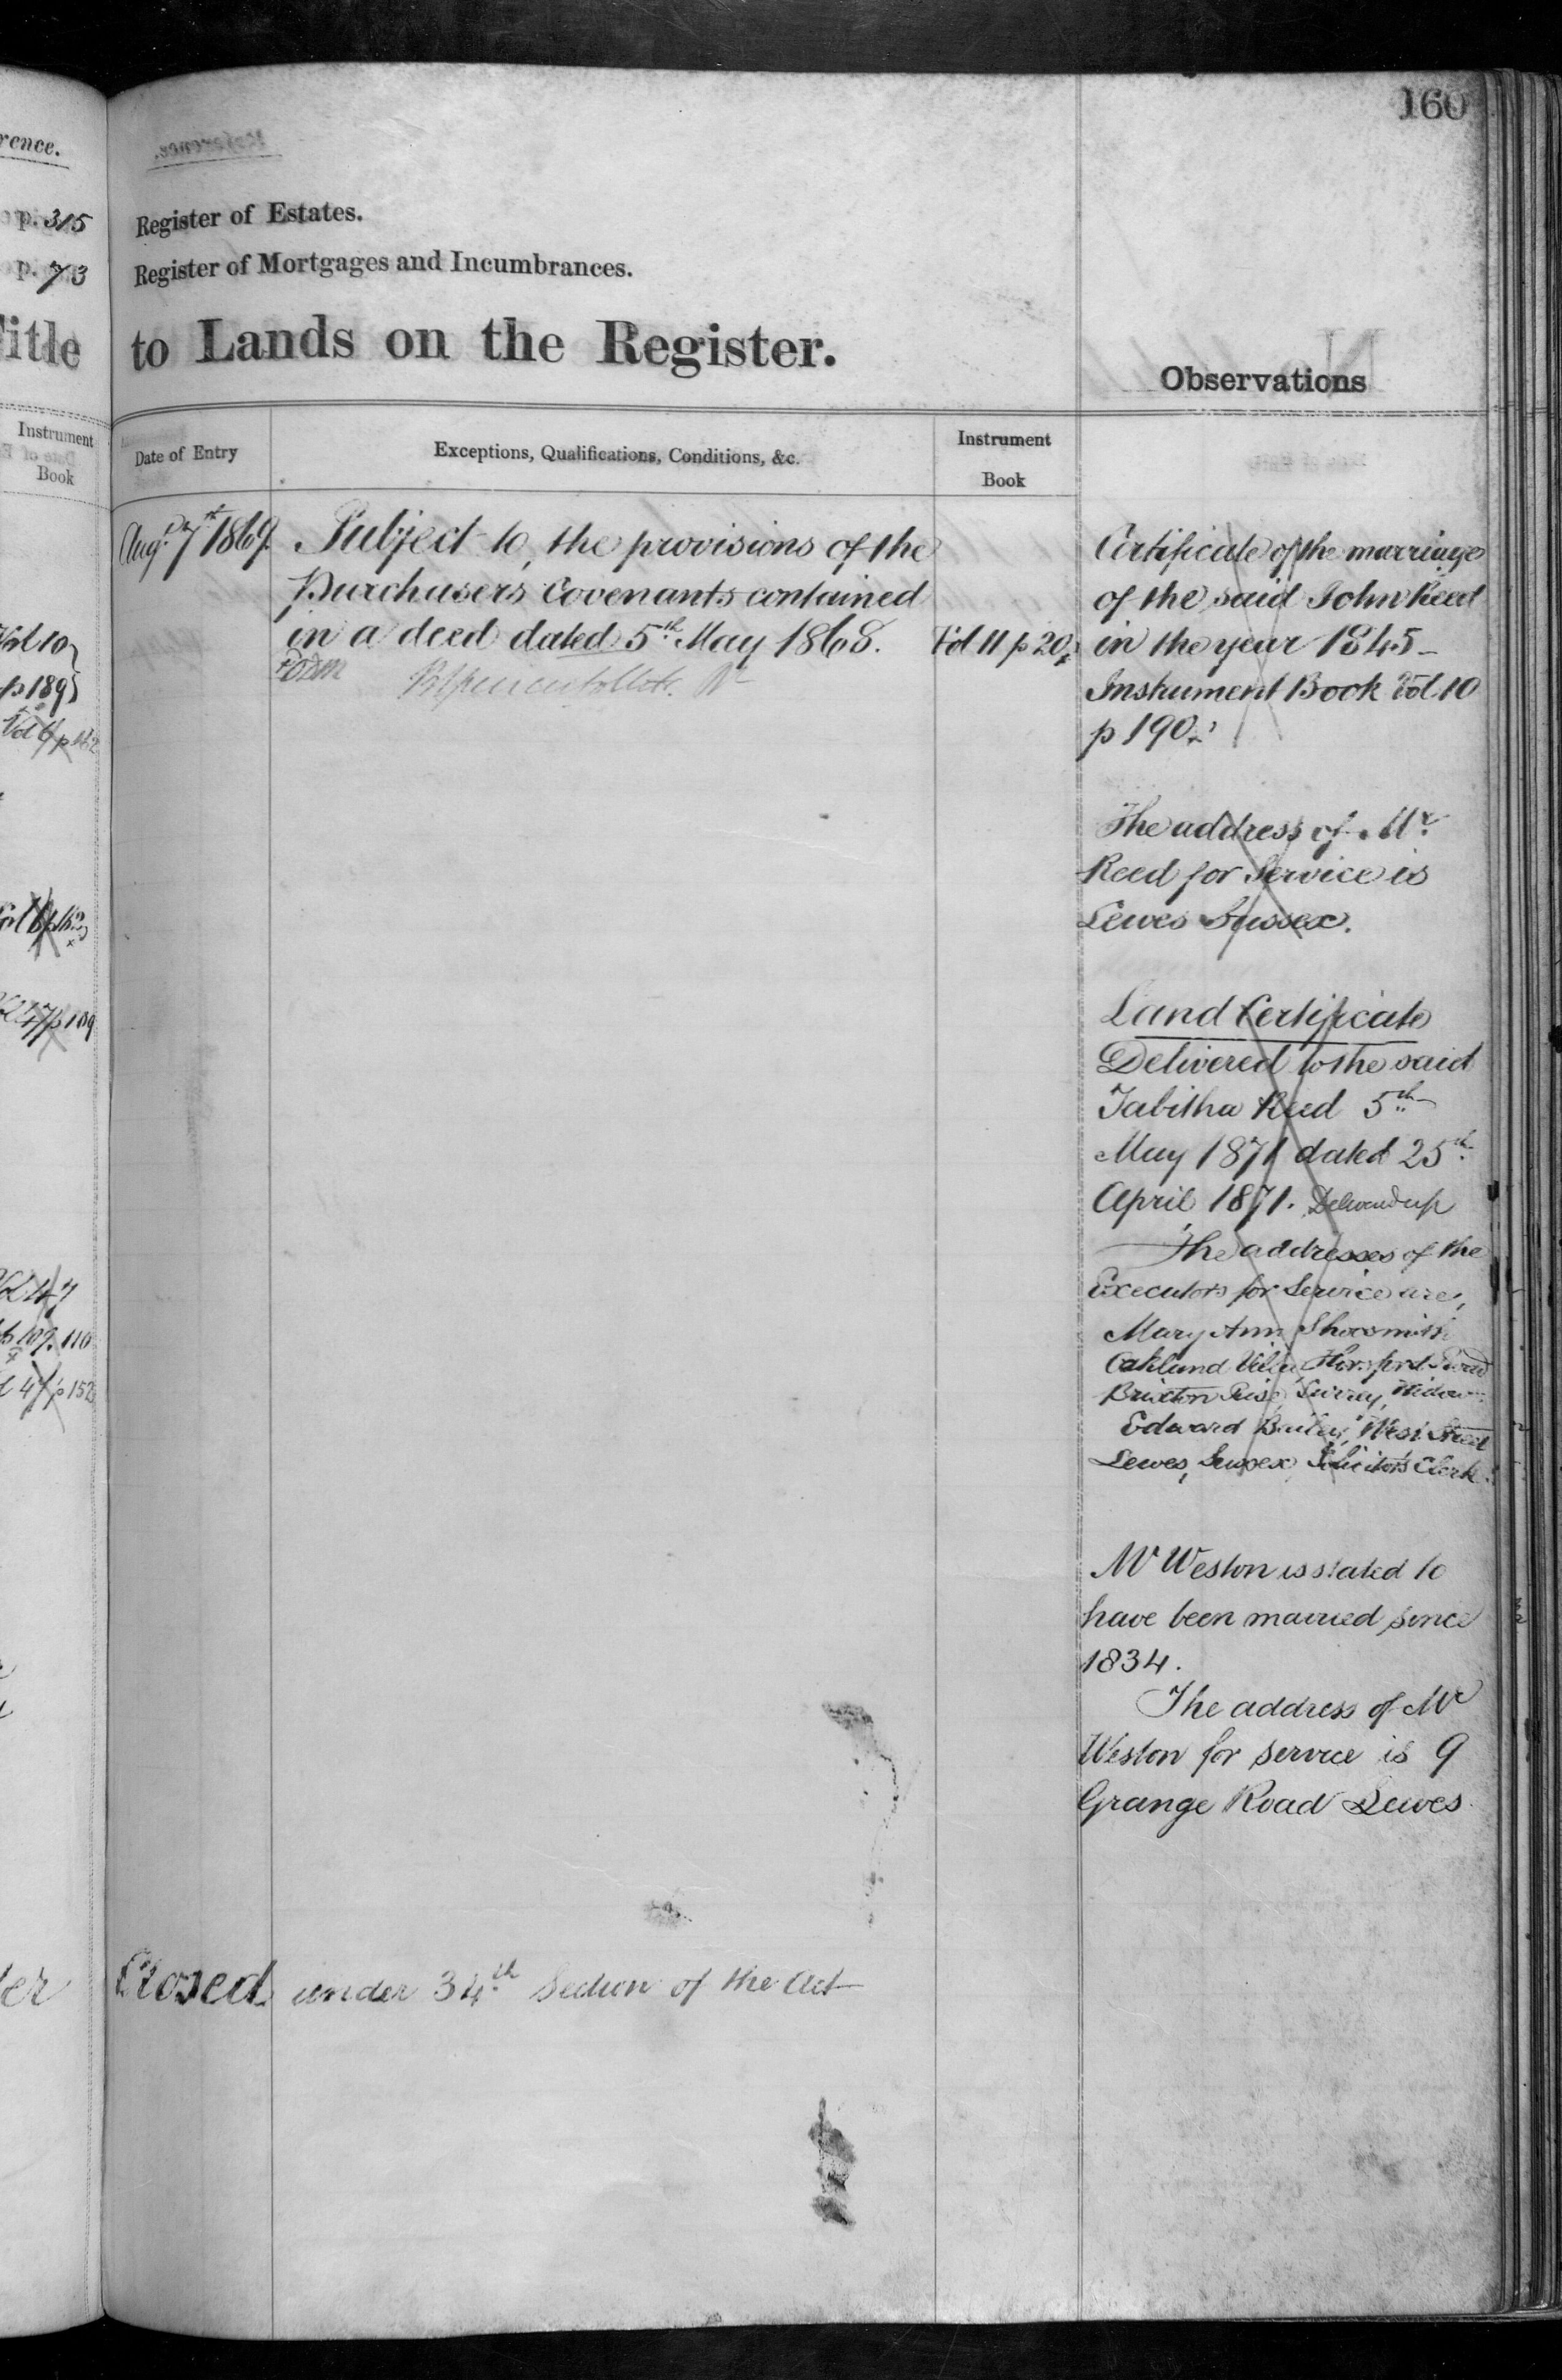 160
rence.
p. 315
p. 73
Title
Instrument
Book
Vol 10
p 189
Vol 47
p 109. 110
Register of Estates.
Register of Mortgages and Incumbrances.
to Lands on the Register.
Observations
Date of Entry
Exceptions, Qualifications, Conditions, &c.
Instrument
Book
Augt. 7th 1869.
Subject to the provisions of the
Purchasers Covenants contained
in a deed dated 5th May 1868.
Vol 11 p 20
Certificate of the marriage
of the said John Reed
in the year 1845 -
Instrument Book Vol 10
p 190.
The address of Mr.
Reed for Service is
Lewes Sussex.
Land Certificate
Delivered to the said
Tabitha Reed 5th
May 1871 dated 25th
April 1871. Delivered up
The addresses of the
Executors for Service are,
Mary Ann Shoosmith
Oakland Villa, Road
Brixton Rise, Surrey, Widow
Edward Bailey, West Street
Lewes, Sussex, Solicitors Clerk.
Mr Weston is stated to
have been married since
1834.
The address of Mr
Weston for service is 9
Grange Road Lewes
Closed under 34th Section of the Act